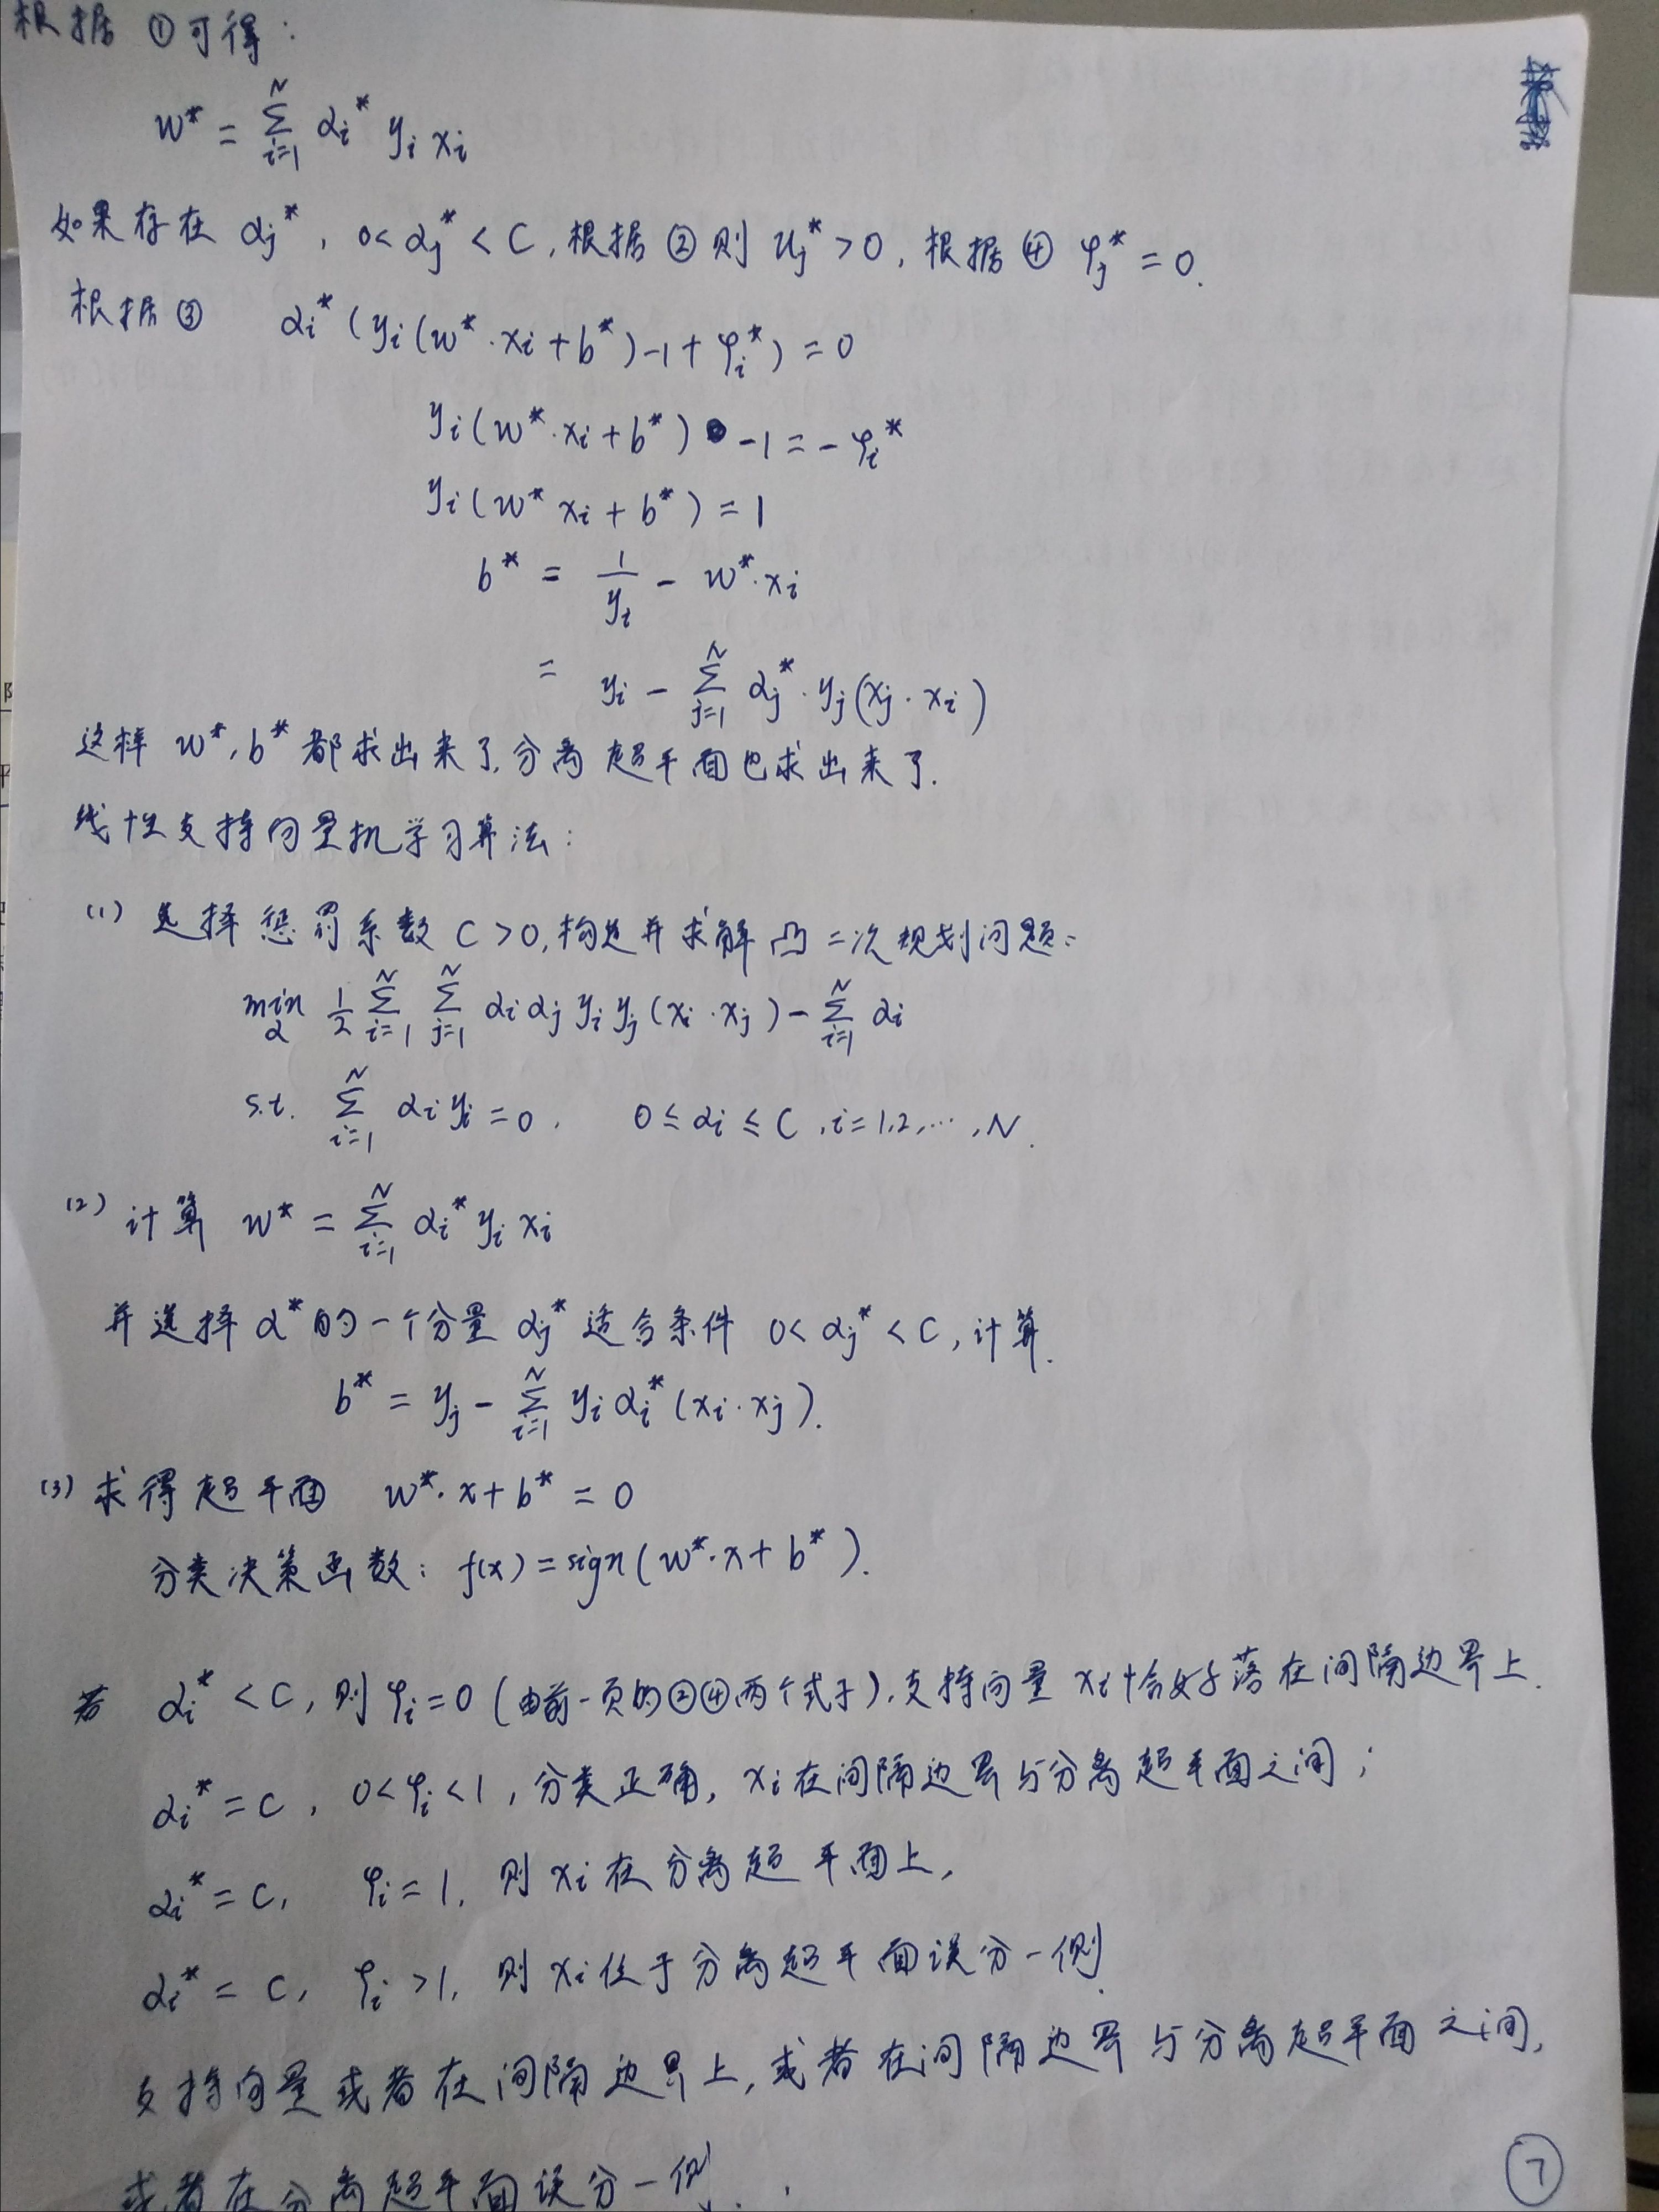 根据 ①可得：
w* = Σ_{i=1}^{N} α_i* y_i x_i
如果存在 α_j*, 0 < α_j* < C, 根据 ② 则 u_j* > 0, 根据 ④ φ_j* = 0.
根据 ③ α_i* (y_i (w* · x_i + b*) - 1 + φ_i*) = 0
y_i (w* · x_i + b*) - 1 = - φ_i*
y_i (w* x_i + b*) = 1
b* = 1/y_i - w* · x_i
= y_i - Σ_{j=1}^{N} α_j* · y_j (x_j · x_i)
这样 w*, b* 都求出来了, 分离超平面也求出来了.
线性支持向量机学习算法：
(1) 选择惩罚系数 C > 0, 构造并求解凸二次规划问题：
min_α 1/2 Σ_{i=1}^{N} Σ_{j=1}^{N} α_i α_j y_i y_j (x_i · x_j) - Σ_{i=1}^{N} α_i
s.t. Σ_{i=1}^{N} α_i y_i = 0, 0 ≤ α_i ≤ C, i = 1,2,…,N.
(2) 计算 w* = Σ_{i=1}^{N} α_i* y_i x_i
并选择 α* 的一个分量 α_j* 适合条件 0 < α_j* < C, 计算.
b* = y_j - Σ_{i=1}^{N} y_i α_i* (x_i · x_j).
(3) 求得超平面 w* · x + b* = 0
分类决策函数：f(x) = sign(w* · x + b*).
若 α_i* < C, 则 φ_i = 0 (由前一页的②④两个式子), 支持向量 x_i 恰好落在间隔边界上.
α_i* = C, 0 < φ_i < 1, 分类正确, x_i 在间隔边界与分离超平面之间;
α_i* = C, φ_i = 1, 则 x_i 在分离超平面上,
α_i* = C, φ_i > 1, 则 x_i 位于分离超平面误分一侧.
支持向量或者在间隔边界上, 或者在间隔边界与分离超平面之间,
或者在分离超平面误分一侧.
⑦